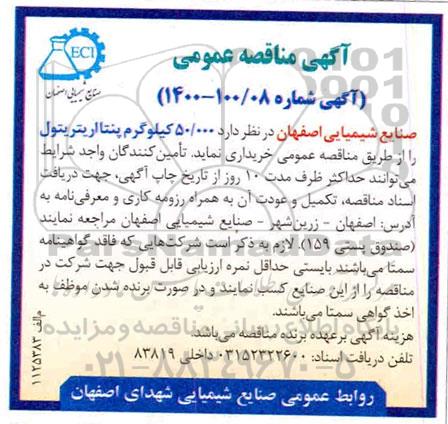 ECI
صنایع شیمیایی اصفهان
آگهی مناقصه عمومی
(آگهی شماره ۱۰۰/۰۸-۱۴۰۰)
صنایع شیمیایی اصفهان در نظر دارد ۵۰/۰۰۰ کیلوگرم پنتااریتریتول
را از طریق مناقصه عمومی خریداری نماید. تأمین‌کنندگان واجد شرایط
می‌توانند حداکثر ظرف مدت ۱۰ روز از تاریخ چاپ آگهی، جهت دریافت
اسناد مناقصه، تکمیل و عودت آن به همراه رزومه کاری و معرفی‌نامه به
آدرس: اصفهان - زرین‌شهر - صنایع شیمیایی اصفهان مراجعه نمایند
(صندوق پستی ۱۵۹). لازم به ذکر است شرکت‌هایی که فاقد گواهینامه
سمتا می‌باشند بایستی حداقل نمره ارزیابی قابل قبول جهت شرکت در
مناقصه را از این صنایع کسب نمایند و در صورت برنده شدن موظف به
اخذ گواهی سمتا می‌باشند.
هزینه آگهی برعهده برنده مناقصه می‌باشد.
تلفن دریافت اسناد: ۰۳۱۵۲۳۲۲۶۰۰ داخلی ۸۳۸۱۹
م الف ۱۱۲۵۳۸۳
پایگاه اطلاع رسانی مناقصه و مزایده
۰۲۱-۸۸۳۴۹۶۷۰-۵
روابط عمومی صنایع شیمیایی شهدای اصفهان